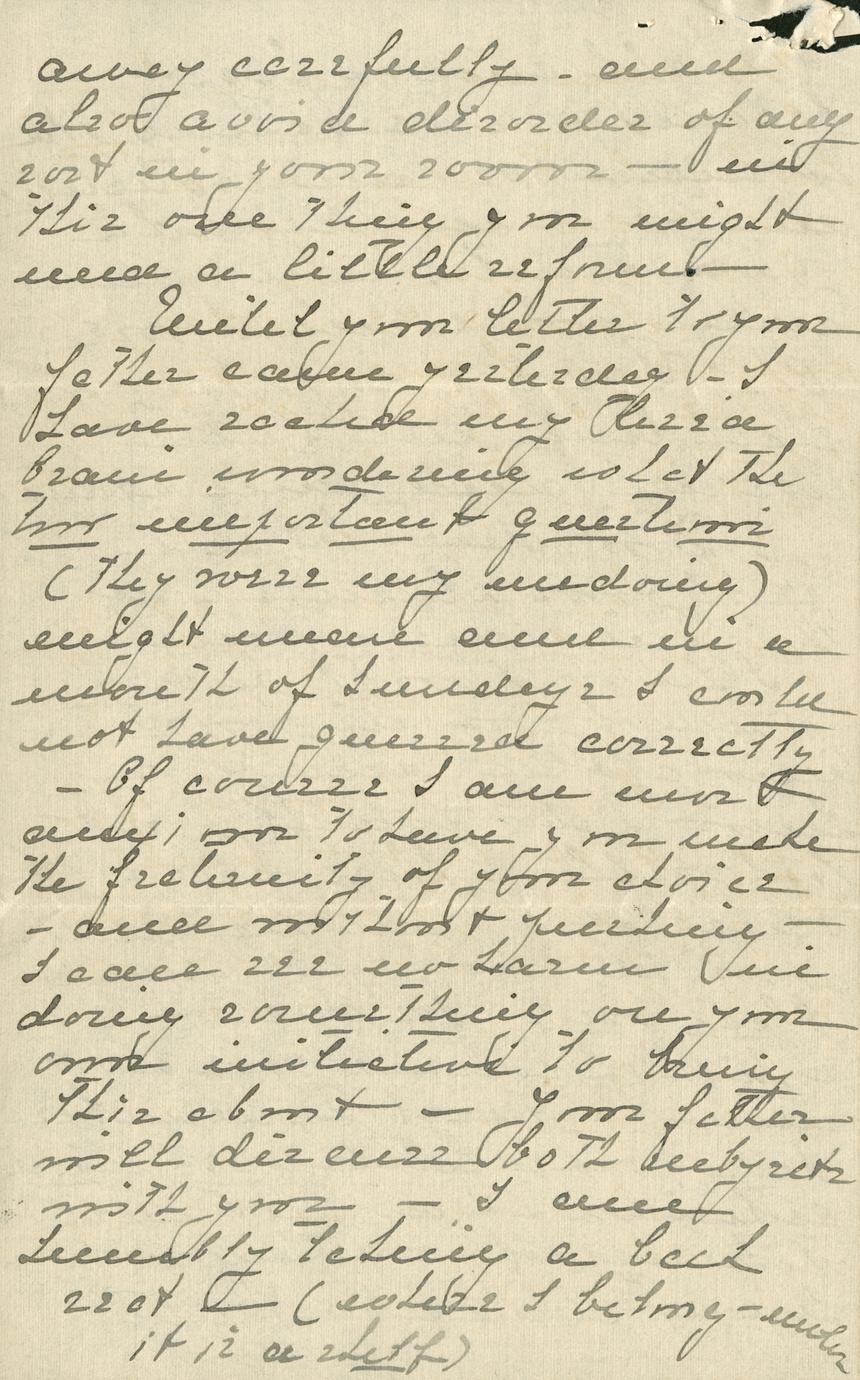 away carefully - and
also avoid disorder of any
sort in your room — in
this one thing you might
need a little reform. —
Until your letter to your
father came yesterday - I
have racked my tired
brain wondering what the
two important questions
(they were my undoing)
might mean and in a
month of Sundays I could
not have guessed correctly
- Of course I am most
anxious to have you make
the fraternity of your choice
- and without pushing —
I can see no harm in
doing something on your
own initiative to bring
this about — Your father
will discuss both subjects
with you — I am
humbly taking a back
seat — (where I belong - unless
it is a shelf)